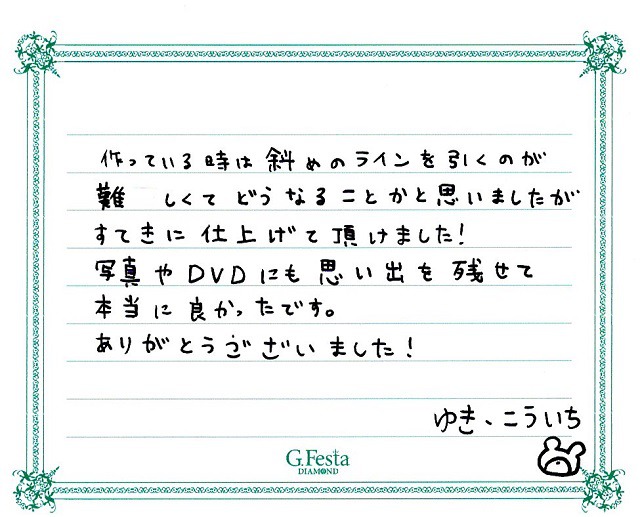 作っている時は斜めのラインを引くのが
難しくてどうなることかと思いましたが
すてきに仕上げて頂けました!
写真やDVDにも思い出を残せて
本当に良かったです。
ありがとうございました!
ゆき、こういち
G.Festa
DIAMOND